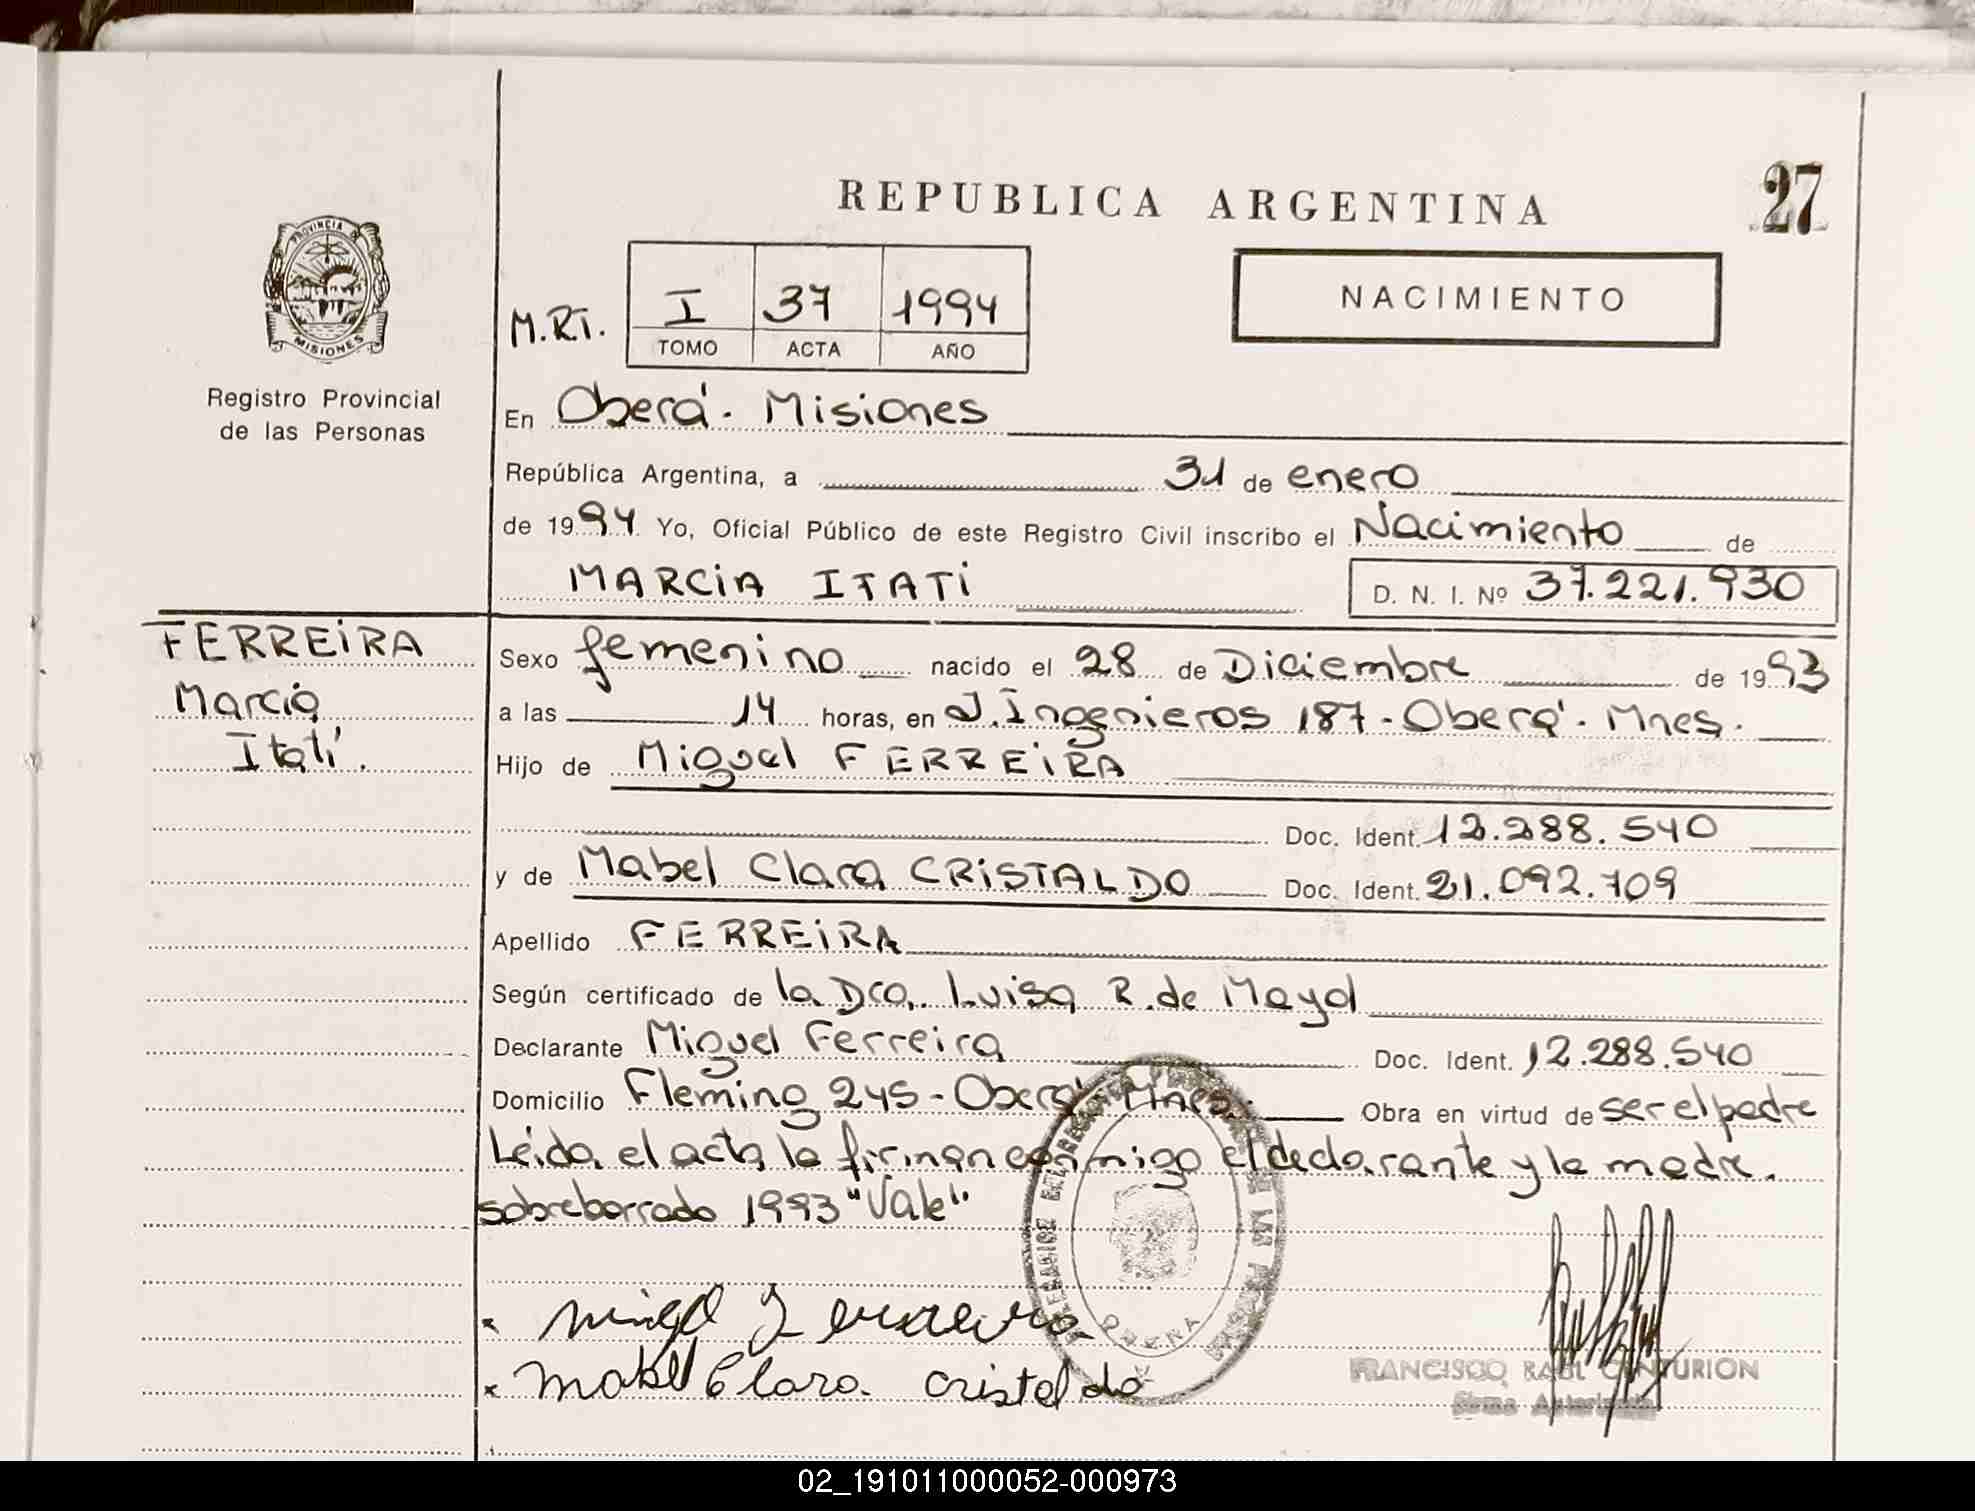 REPUBLICA ARGENTINA
27
PROVINCIA DE
MISIONES
Registro Provincial
de las Personas
M.R.T.
I 37 1994
TOMO ACTA AÑO
NACIMIENTO
En Oberá - Misiones
República Argentina, a 31 de enero
de 1994 Yo, Oficial Público de este Registro Civil inscribo el Nacimiento de
MARCIA ITATI D. N. I. Nº 37.221.930
FERREIRA
Marcia
Itatí.
Sexo femenino nacido el 28 de Diciembre de 1993
a las 14 horas, en J. Ingenieros 187 - Oberá - Mnes.
Hijo de Miguel FERREIRA
Doc. Ident. 12.288.540
y de Mabel Clara CRISTALDO Doc. Ident. 21.092.709
Apellido FERREIRA
Según certificado de la Dra. Luisa R. de Mayol
Declarante Miguel Ferreira Doc. Ident. 12.288.540
Domicilio Fleming 245 - Oberá Mnes. Obra en virtud de ser el padre
Leída el acta la firman conmigo el declarante y la madre.
sobreborrado 1993 "Vale"
x Miguel Ferreira
x Mabel Clara Cristaldo
OBERA
FRANCISCO RAUL CENTURION
Firma Autorizada
02_191011000052-000973